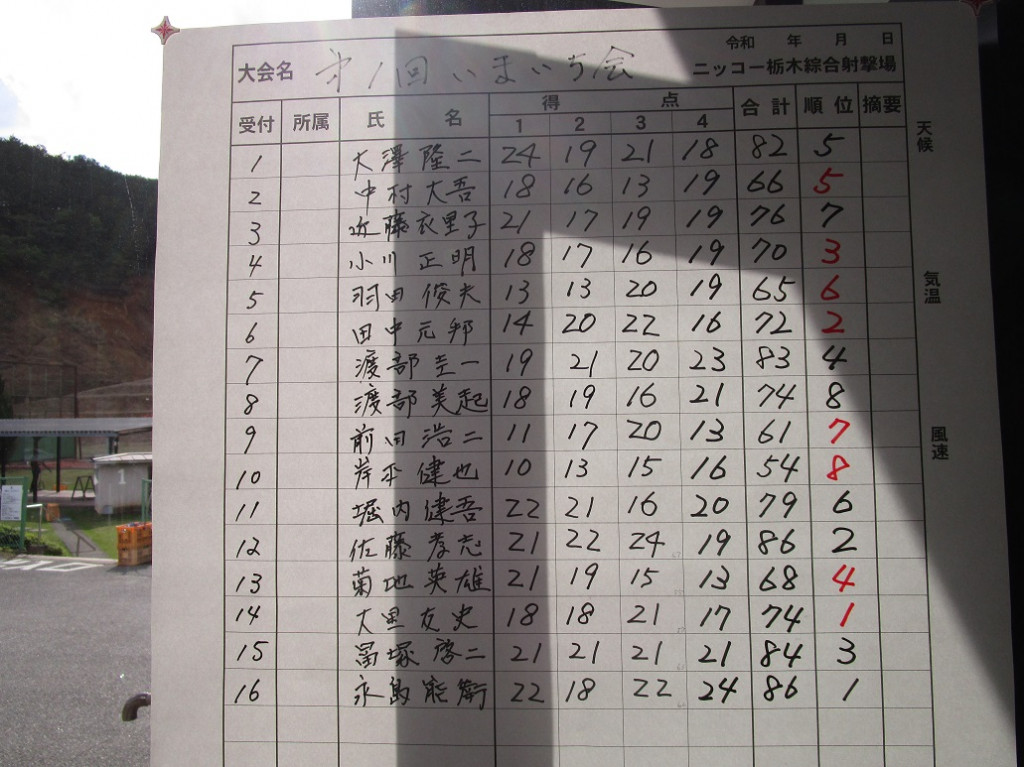 令和 年 月 日
大会名 第1回 いまいち会 ニッコー栃木綜合射撃場
受付 所属 氏 名 得 点 合計 順位 摘要
1 2 3 4
1 大澤隆二 24 19 21 18 82 5
2 中村大吾 18 16 13 19 66 5
3 近藤衣里子 21 17 19 19 76 7
4 小川正明 18 17 16 19 70 3
5 羽田俊夫 13 13 20 19 65 6
6 田中元邦 14 20 22 16 72 2
7 渡部圭一 19 21 20 23 83 4
8 渡部美起 18 19 16 21 74 8
9 前田浩二 11 17 20 13 61 7
10 岸本健也 10 13 15 16 54 8
11 堀内健吾 22 21 16 20 79 6
12 佐藤孝志 21 22 24 19 86 2
13 菊地英雄 21 19 15 13 68 4
14 大里友史 18 18 21 17 74 1
15 冨塚啓二 21 21 21 21 84 3
16 永島能衛 22 18 22 24 86 1
天候
気温
風速
1